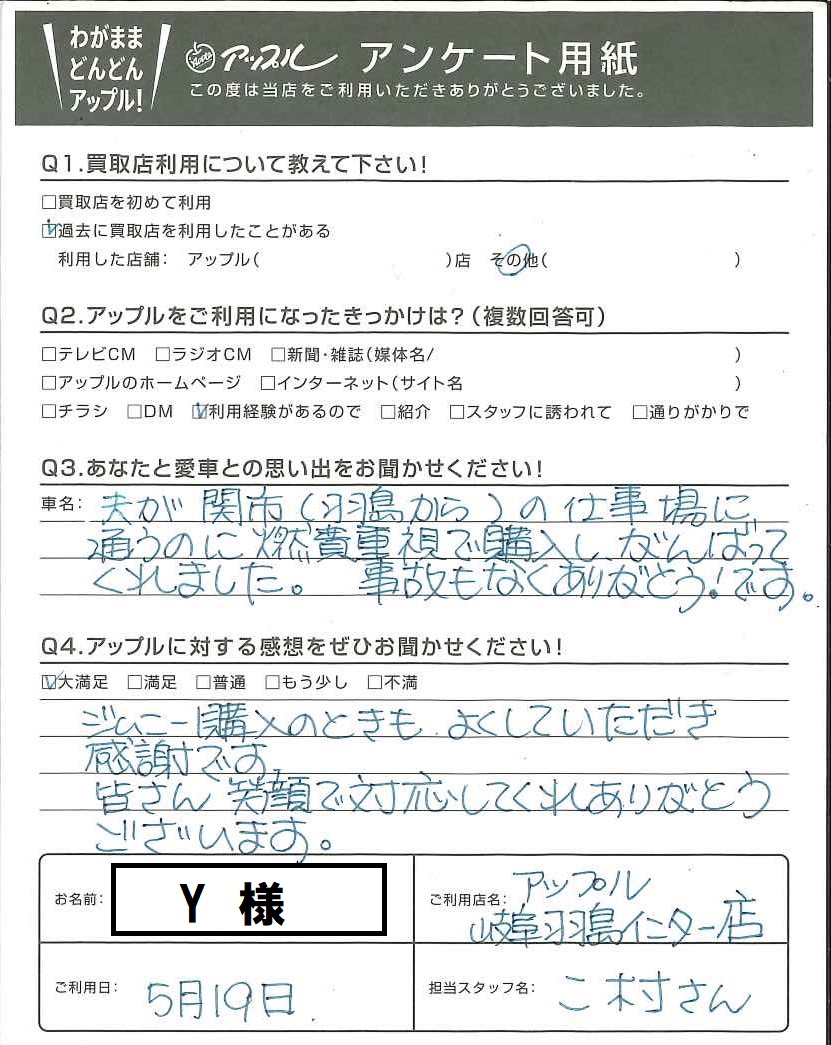 わがまま
どんどん
アップル!
アップル アンケート用紙
この度は当店をご利用いただきありがとうございました。
Q1.買取店利用について教えて下さい!
□買取店を初めて利用
☑過去に買取店を利用したことがある
利用した店舗: アップル( )店 その他( )
Q2.アップルをご利用になったきっかけは?(複数回答可)
□テレビCM □ラジオCM □新聞・雑誌(媒体名/ )
□アップルのホームページ □インターネット(サイト名 )
□チラシ □DM ☑利用経験があるので □紹介 □スタッフに誘われて □通りがかりで
Q3.あなたと愛車との思い出をお聞かせください!
車名: 夫が関市(羽島から)の仕事場に
通うのに燃費重視で購入し、がんばって
くれました。 事故もなくありがとう!です。
Q4.アップルに対する感想をぜひお聞かせください!
☑大満足 □満足 □普通 □もう少し □不満
ジムニー購入のときも、よくしていただき
感謝です。
皆さん 笑顔で対応してくれありがとう
ございます。
お名前: Y 様
ご利用店名: アップル
岐阜羽島インター店
ご利用日: 5月19日
担当スタッフ名: こ村さん